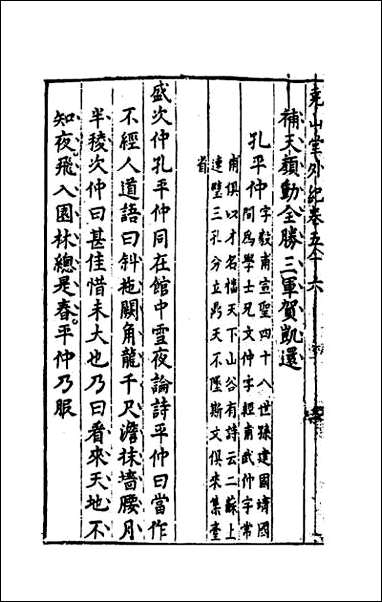 堯山堂外紀卷五十六
補天顏動全勝三軍賀凱還
孔平仲
字毅甫宣聖四十八世孫建國靖國
間爲學士兄文仲字經甫武仲字常
甫俱以才名懾天下山谷有詩云二蘇上
連璧三孔分立鼎天不墜斯文俱來集臺
省
盛次仲孔平仲同在館中雪夜論詩平仲曰當作
不經人道語曰斜拖闕角龍千尺澹抹墻腰月
半稜次仲曰甚佳惜未大也乃曰看來天地不
知夜飛入園林總是春平仲乃服